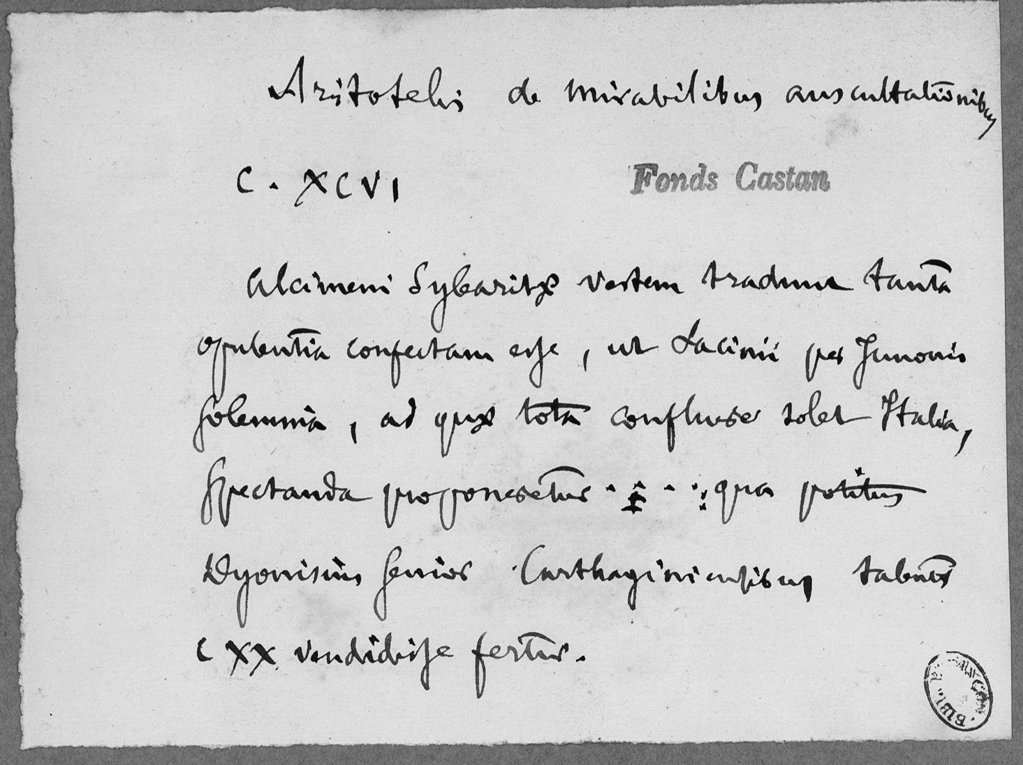 Aristotelis de mirabilibus auscultationibus
C. XCVI
Fonds Castan
Alcimeni Sybaritæ vestem tradunt tantâ
opulentiâ confectam esse, ut Lacinii per Junonis
solemnia, ad quæ tota confluere solet Italia,
spectanda proponeretur . . . . ; qua potitus
Dyonisius senior Carthaginiensibus talentis
CXX vendidisse fertur.
BIBL. BESANÇON